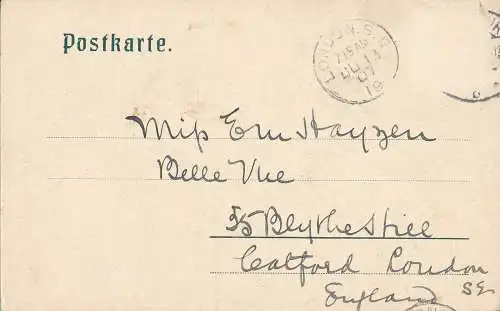 Postkarte.
LONDON. S.E
7.15 AM
JU 13
07
18
Miss Ern Hayzen
Belle Vue
35 Blythe Hill
Catford London
S.E.
England